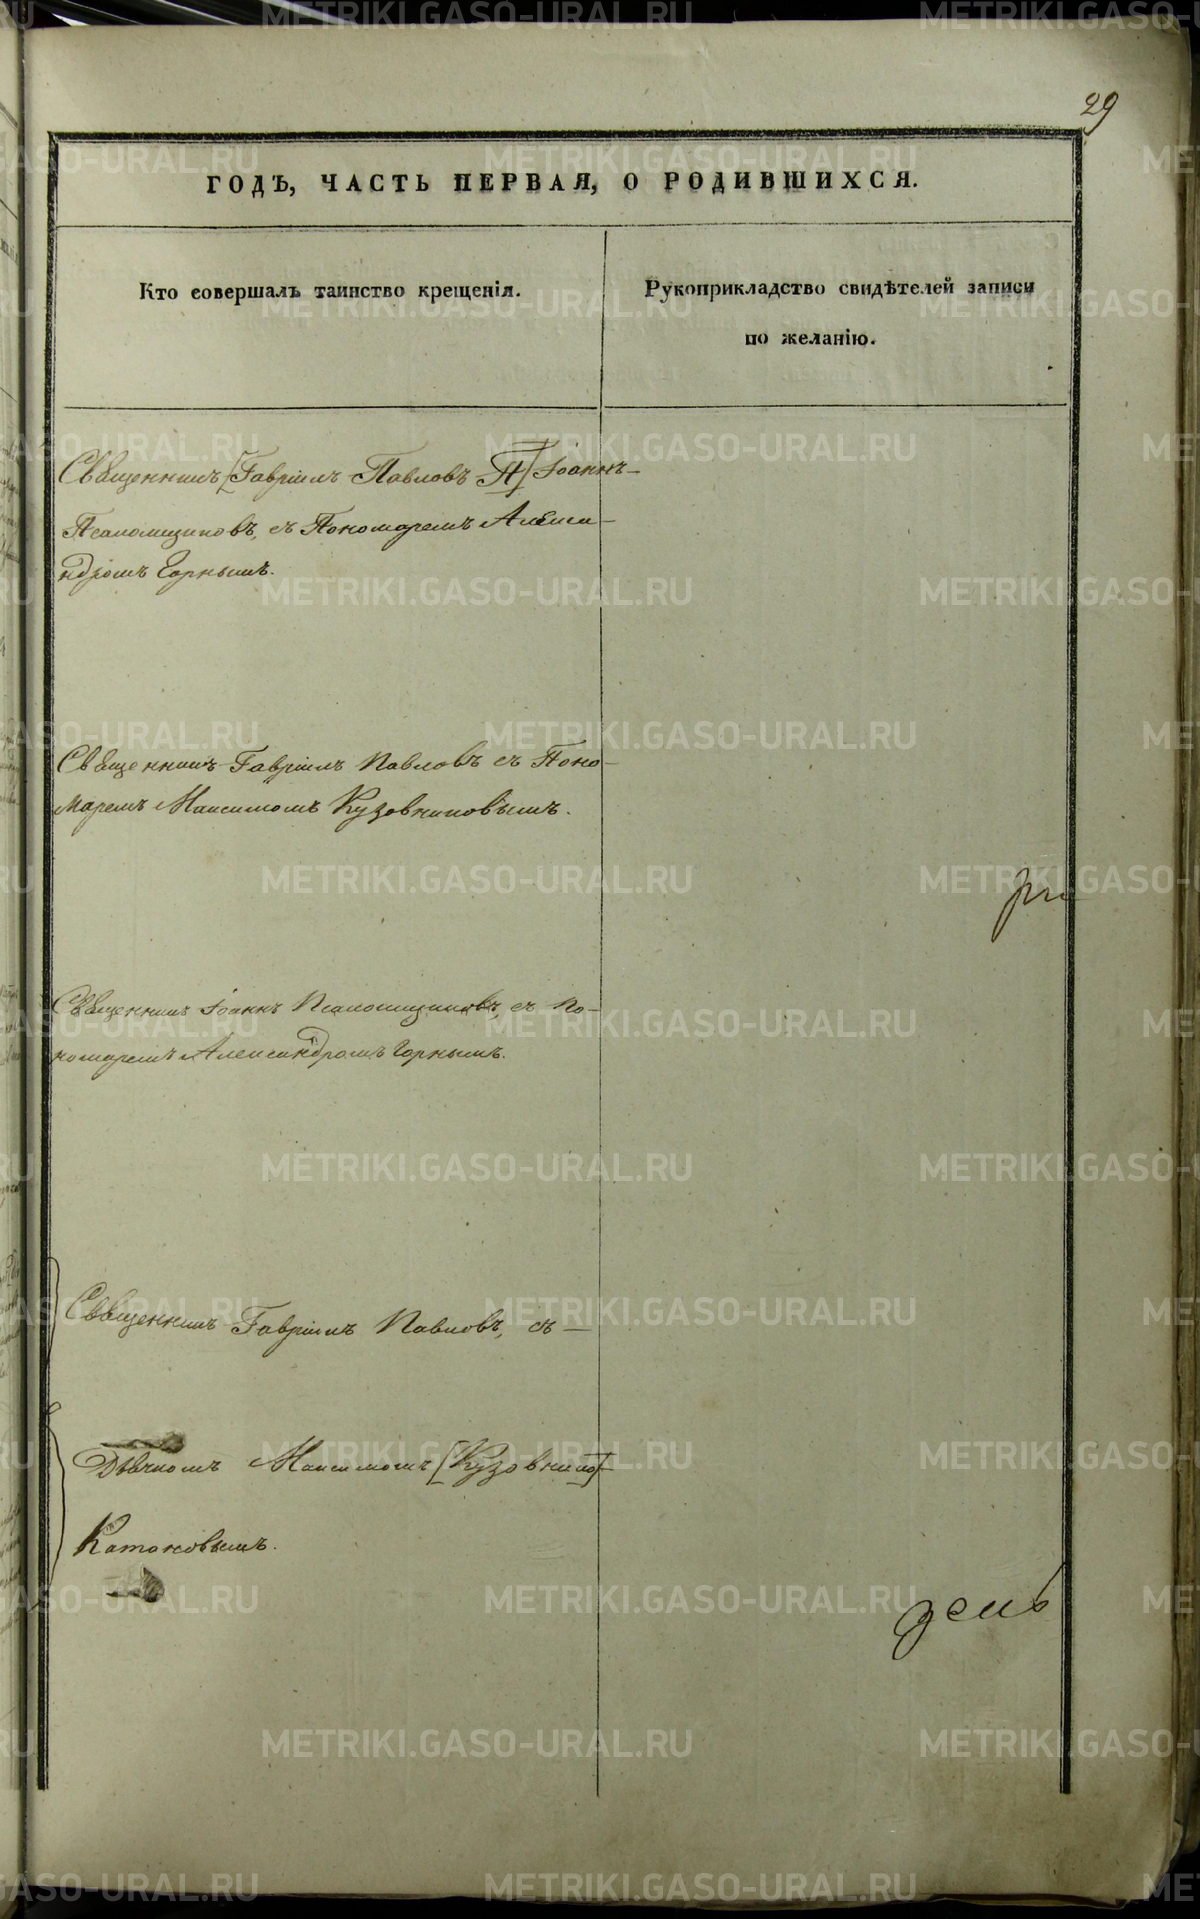 29
ГОДЪ, ЧАСТЬ ПЕРВАЯ, О РОДИВШИХСЯ.
Кто совершалъ таинство крещенія.
Рукоприкладство свидѣтелей записи
по желанію.
Священникъ [Гавріилъ Павловъ П] Іоаннъ
Псаломщиковъ, съ Пономаремъ Алекса-
ндромъ Горнымъ.
Священникъ Гавріилъ Павловъ съ Поно-
маремъ Максимомъ Кузовниковымъ.
Священникъ Іоаннъ Псаломщиковъ, съ По-
номаремъ Александромъ Горнымъ.
Священникъ Гавріилъ Павловъ, съ
Дьячкомъ Максимомъ [Кузовнико]
Катановымъ.
день
METRIKI.GASO-URAL.RU